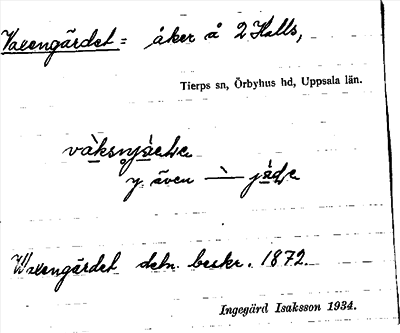 Vaxengärdet = åker å 2 Halls,
Tierps sn, Örbyhus hd, Uppsala län.
även
Waxengärdet detn. beskr. 1872.
Ingegärd Isaksson 1934.